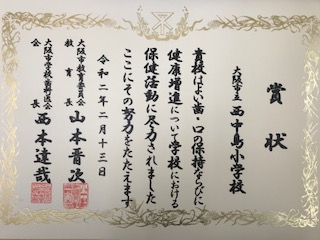 賞状
大阪市立 西中島小学校
貴校はよい歯・口の保持ならびに
健康増進について学校における
保健活動に尽力されました
ここにその努力をたたえます
令和二年二月十三日
大阪市教育委員会
教育長 山本晋次
大阪市学校歯科医会
会長 西本達哉